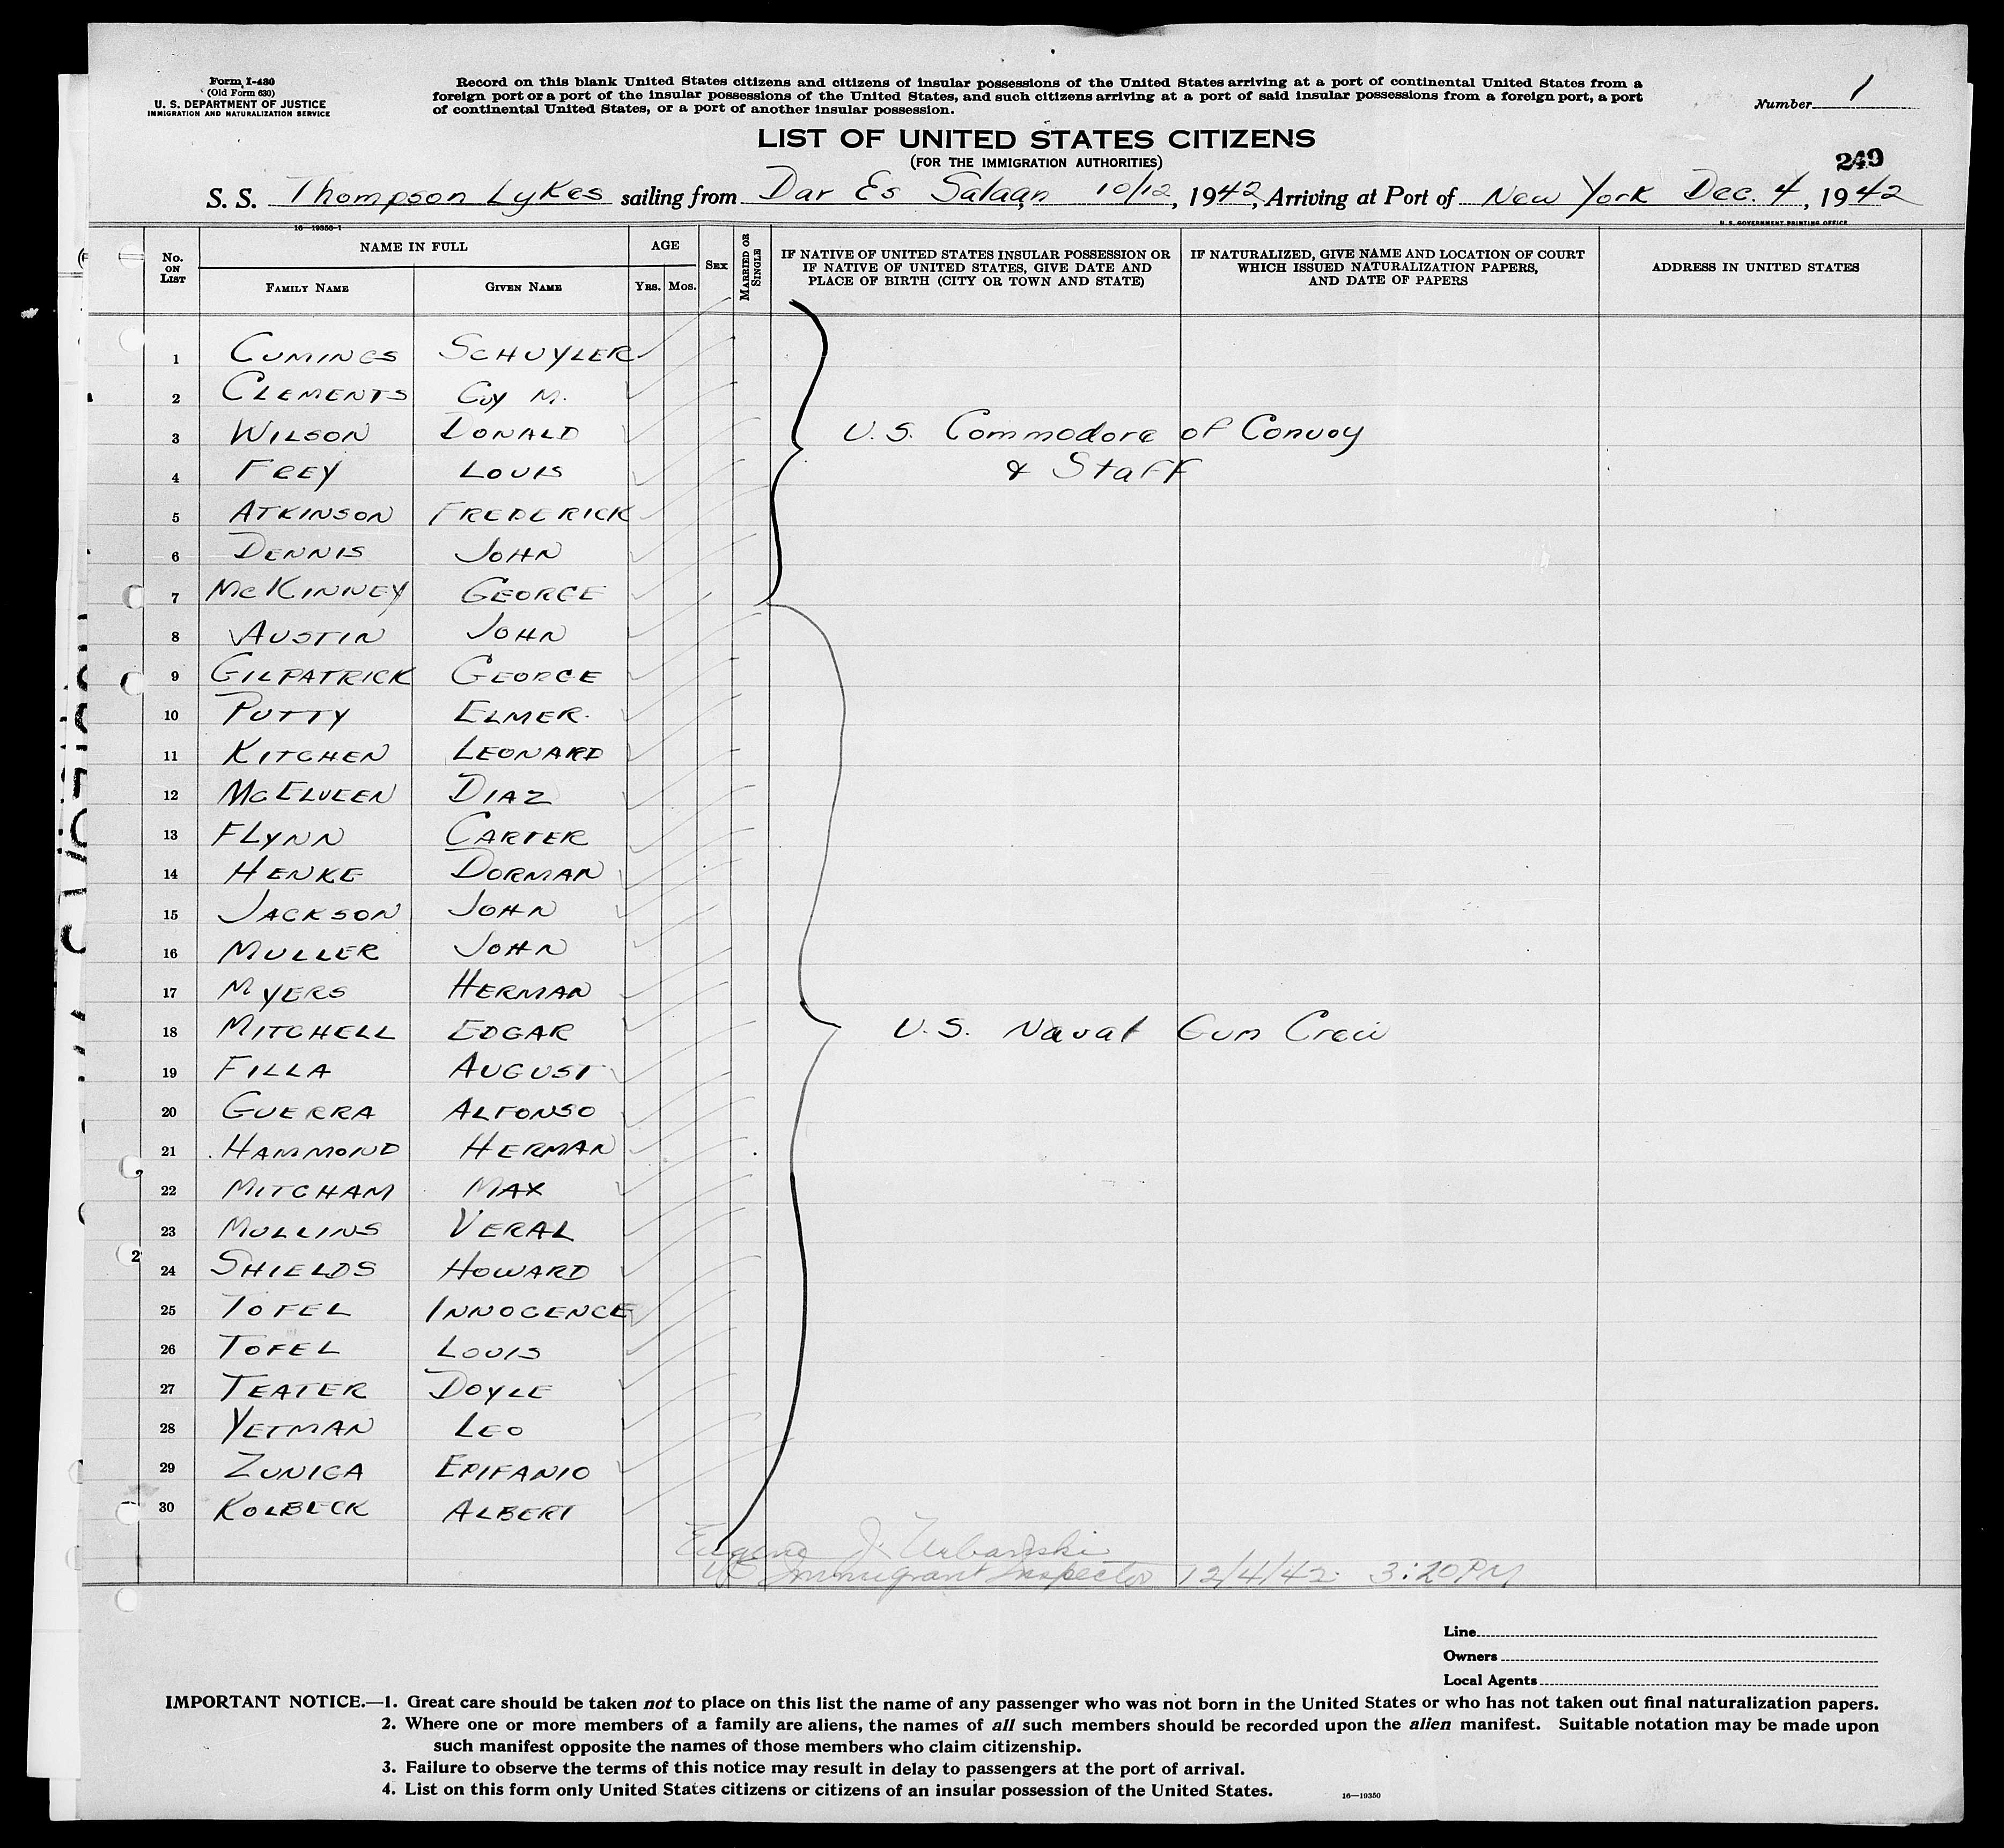 Form I-430
(Old Form 630)
U. S. DEPARTMENT OF JUSTICE
IMMIGRATION AND NATURALIZATION SERVICE
Record on this blank United States citizens and citizens of insular possessions of the United States arriving at a port of continental United States from a
foreign port or a port of the insular possessions of the United States, and such citizens arriving at a port of said insular possessions from a foreign port, a port
of continental United States, or a port of another insular possession.
Number 1
LIST OF UNITED STATES CITIZENS
(FOR THE IMMIGRATION AUTHORITIES)
249
S. S. Thompson Lykes sailing from Dar Es Salaan 10/12, 1942, Arriving at Port of New York Dec. 4, 1942
16—19350-1
U. S. GOVERNMENT PRINTING OFFICE
No. ON LIST
NAME IN FULL
FAMILY NAME
GIVEN NAME
AGE
YRS. MOS.
SEX
MARRIED OR SINGLE
IF NATIVE OF UNITED STATES INSULAR POSSESSION OR
IF NATIVE OF UNITED STATES, GIVE DATE AND
PLACE OF BIRTH (CITY OR TOWN AND STATE)
IF NATURALIZED, GIVE NAME AND LOCATION OF COURT
WHICH ISSUED NATURALIZATION PAPERS,
AND DATE OF PAPERS
ADDRESS IN UNITED STATES
1 CUMINGS SCHUYLER
2 CLEMENTS GUY M.
3 WILSON DONALD U.S. Commodore of Convoy
4 FREY LOUIS & Staff
5 ATKINSON FREDERICK
6 DENNIS JOHN
7 McKINNEY GEORGE
8 AUSTIN JOHN
9 GILPATRICK GEORGE
10 PUTTY ELMER
11 KITCHEN LEONARD
12 McELVEEN DIAZ
13 FLYNN CARTER
14 HENKE DORMAN
15 JACKSON JOHN
16 MULLER JOHN
17 MYERS HERMAN
18 MITCHELL EDGAR U.S. Naval Gun Crew
19 FILLA AUGUST
20 GUERRA ALFONSO
21 HAMMOND HERMAN
22 MITCHAM MAX
23 MULLINS VERAL
24 SHIELDS HOWARD
25 TOFEL INNOCENCE
26 TOFEL LOUIS
27 TEATER DOYLE
28 YETMAN LEO
29 ZUNIGA EPIFANIO
30 KOLBECK ALBERT
Eugene J. Urbanski
US Immigrant Inspector 12/4/42 3:20 PM
Line
Owners
Local Agents
IMPORTANT NOTICE.—1. Great care should be taken not to place on this list the name of any passenger who was not born in the United States or who has not taken out final naturalization papers.
2. Where one or more members of a family are aliens, the names of all such members should be recorded upon the alien manifest. Suitable notation may be made upon
such manifest opposite the names of those members who claim citizenship.
3. Failure to observe the terms of this notice may result in delay to passengers at the port of arrival.
4. List on this form only United States citizens or citizens of an insular possession of the United States.
16—19350